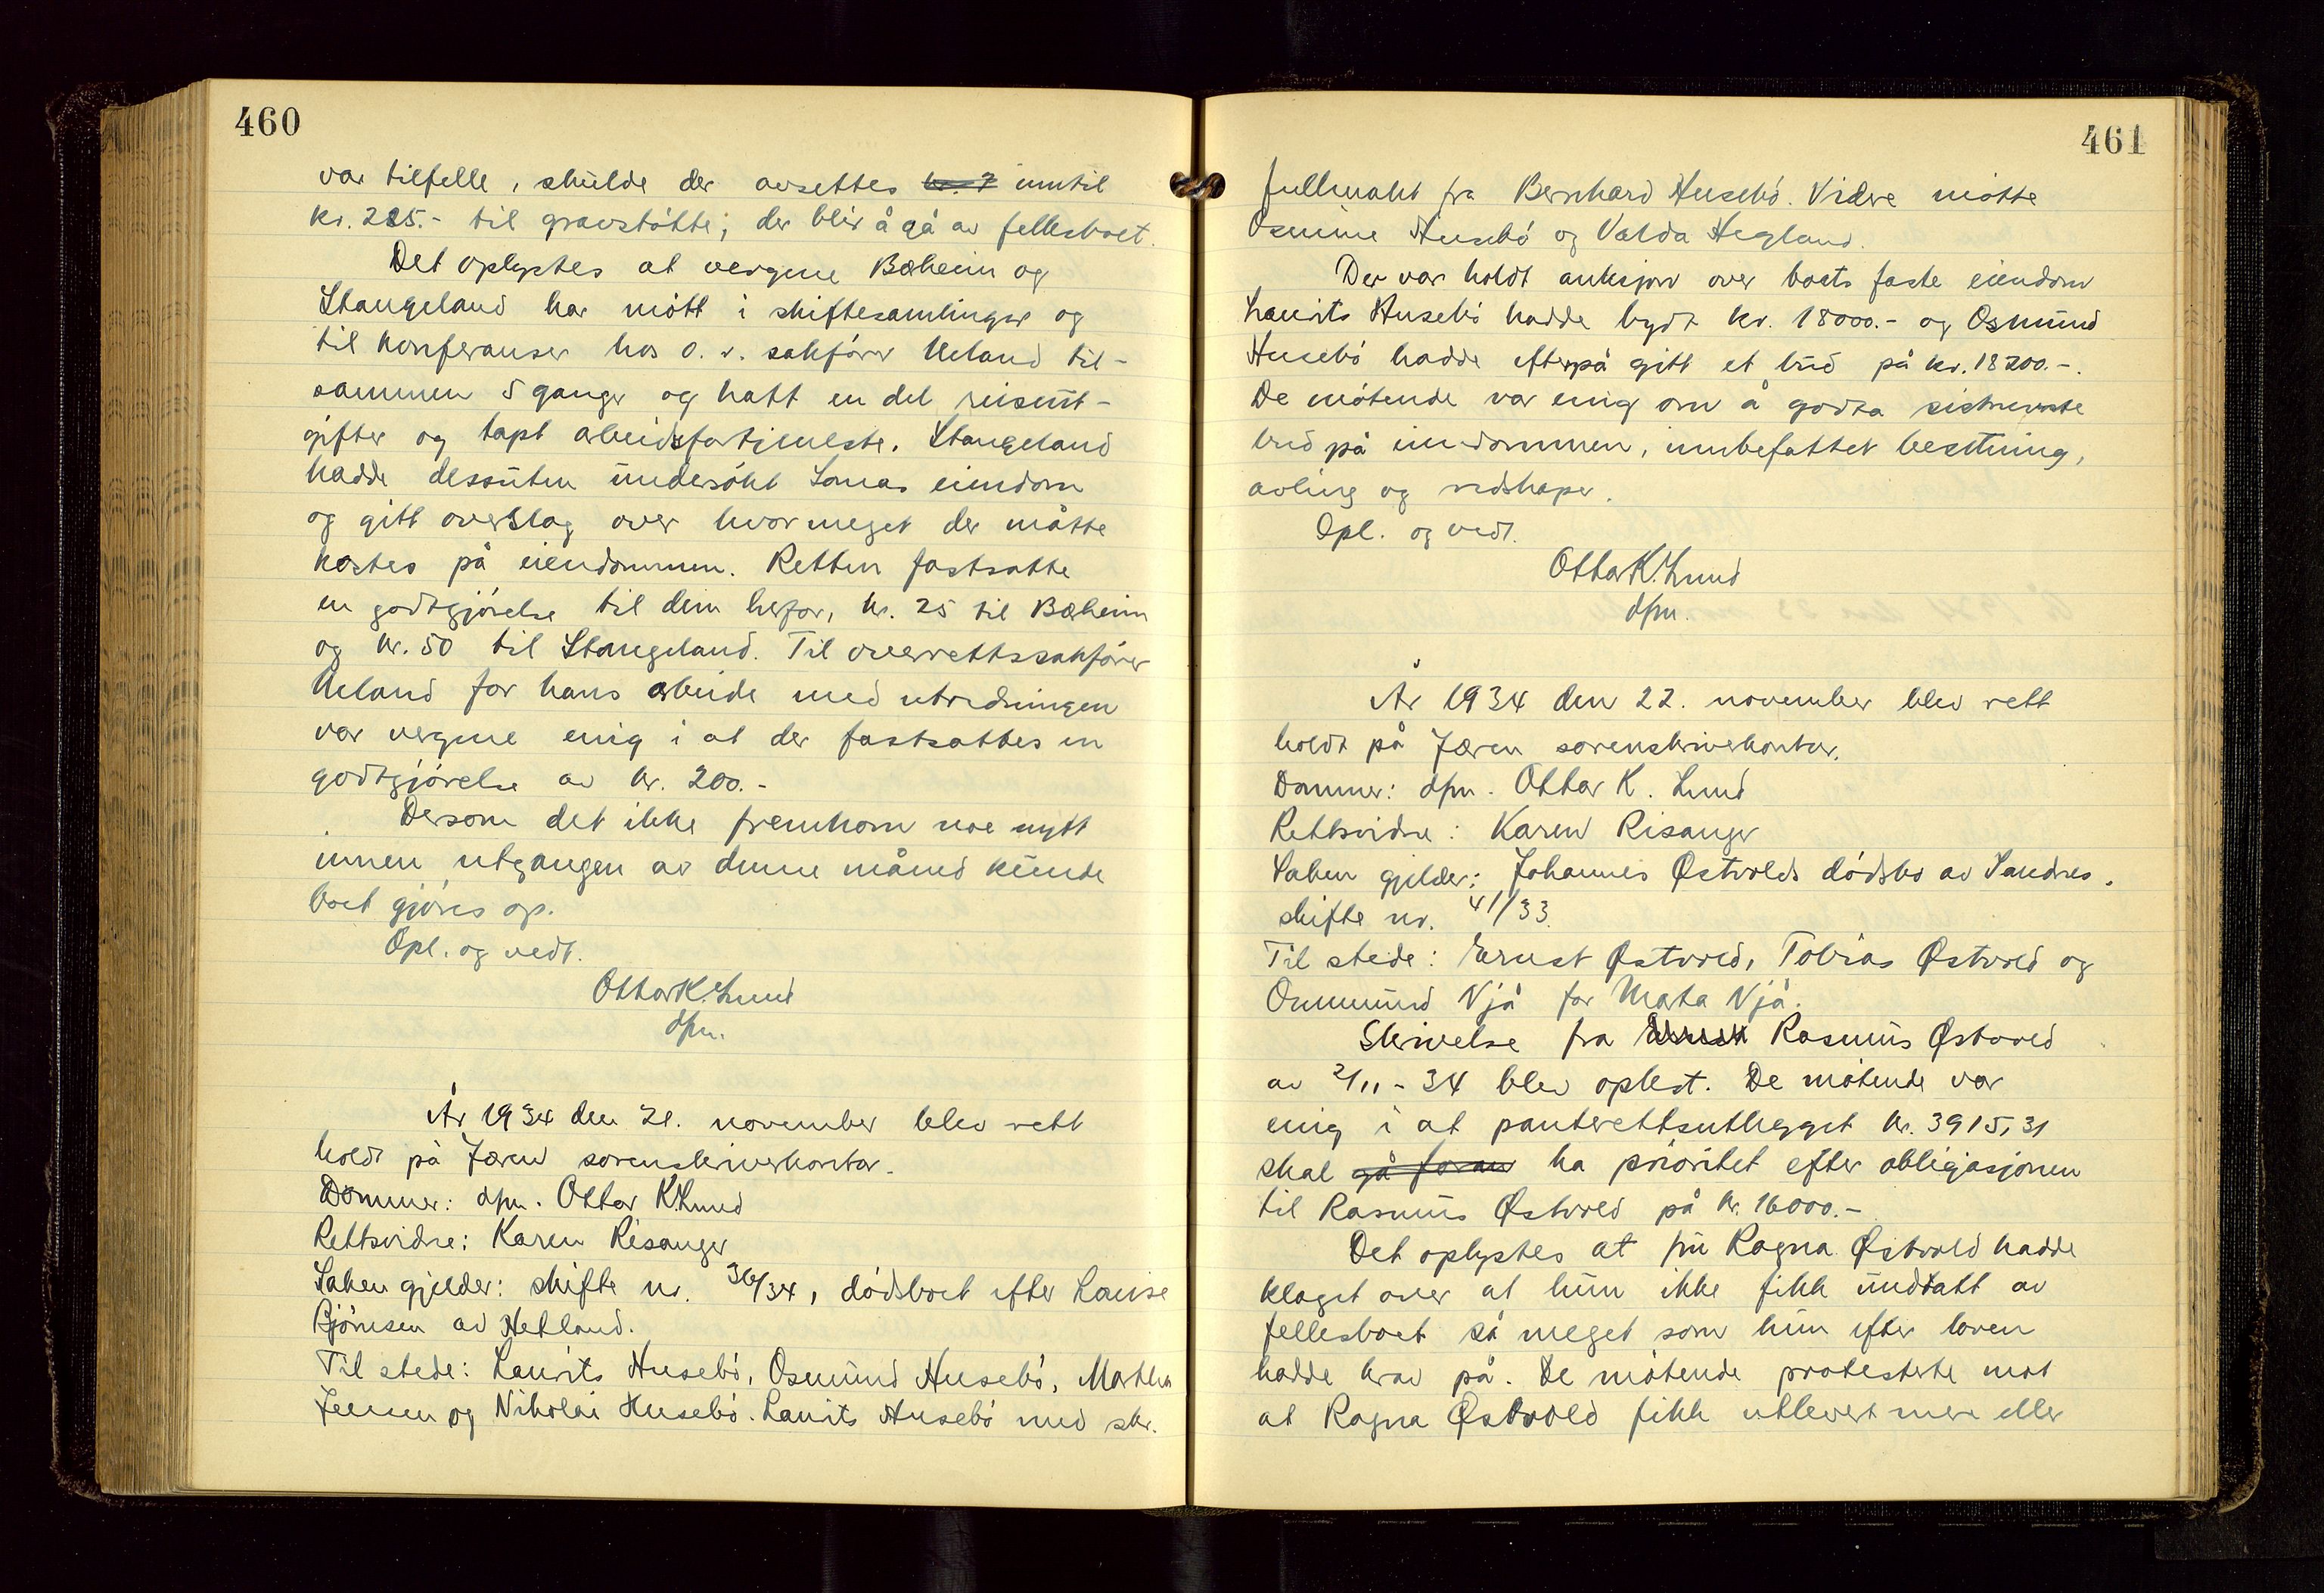 460
var tilfelle, skulde der avsettes inntil
kr. 225.- til gravstøtte; der blir å gå av fellesboet.
Det oplystes at vergene Bøheim og
Stangeland har møtt i skiftesamlinger og
til konferanser hos o. r. sakfører Ueland til-
sammen 5 ganger og hatt en del reiseut-
gifter og tapt arbeidsfortjeneste. Stangeland
hadde dessuten undersøkt Lomas eiendom
og gitt overslag over hvor meget der måtte
kostes på eiendommen. Retten fastsatte
en godtgjørelse til dem herfor, kr. 25 til Bøheim
og kr. 50 til Stangeland. Til overrettssakfører
Ueland for hans arbeide med utredningen
var vergene enig i at der fastsattes en
godtgjørelse av kr. 200.-
Dersom det ikke fremkom noe nytt
innen utgangen av denne måned kunde
boet gjøres op.
Opl. og vedt.
Ottar K. Lund
dfm.
År 1934 den 21. november blev rett
holdt på Jæren sorenskriverkontor.
Dommer: dfm. Ottar K. Lund
Rettsvidne: Karen Risanger
Saken gjelder: skifte nr. 36/34, dødsboet efter Louise
Bjørnsen av Hetland.
Til stede: Laurits Husebø, Osmund Husebø, Martha
Jensen og Nikolai Husebø. Laurits Husebø med skr.
461
fullmakt fra Bernhard Husebø. Videre møtte
Osmine Husebø og Valda Hegland.
Der var holdt auksjon over boets faste eiendom
Laurits Husebø hadde bydt kr. 18000.- og Osmund
Husebø hadde efterpå gitt et bud på kr. 18200.-.
De møtende var enig om å godta sistnevnte
bud på eiendommen, innbefattet besetning,
avling og redskaper.
Opl. og vedt.
Ottar K. Lund
dfm.
År 1934 den 22. november blev rett
holdt på Jæren sorenskriverkontor.
Dommer: dfm. Ottar K. Lund
Rettsvidne: Karen Risanger
Saken gjelder: Johannes Østvolds dødsbo av Sandnes.
skifte nr. 41/33.
Til stede: Ernst Østvold, Tobias Østvold og
Ommund Njå for Marta Njå.
Skrivelse fra Rasmus Østvold
av 2/11 - 34 blev oplest. De møtende var
enig i at panterettsutlegget kr. 3915,31
skal gå foran ha prioritet efter obligasjonen
til Rasmus Østvold på kr. 16000.-
Det oplystes at fru Ragna Østvold hadde
klaget over at hun ikke fikk undtatt av
fellesboet så meget som hun efter loven
hadde krav på. De møtende protesterte mot
at Ragna Østvold fikk utlevert mere eller